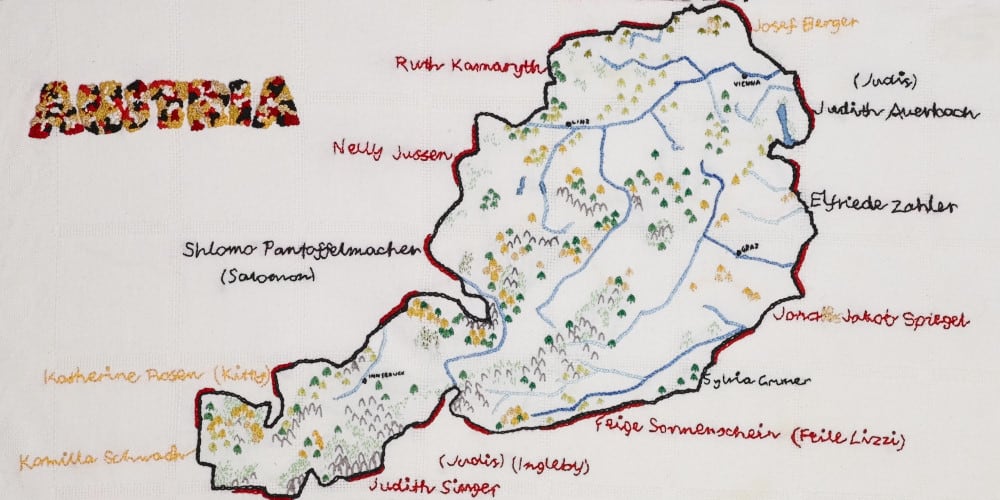 AUSTRIA
Josef Berger
Ruth Kamaryth
VIENNA
(Judis)
Judith Auerbach
LINZ
Nelly Jussen
Elfriede Zahler
Shlomo Pantoffelmacher
(Salomon)
GRAZ
Jakob Spiegel
Katherine Rosen (Kitty)
INNSBRUCK
Sylvia Gruner
Feige Sonnenschein (Feile Lizzi)
Kamilla Schwach
(Judis) (Ingleby)
Judith Singer